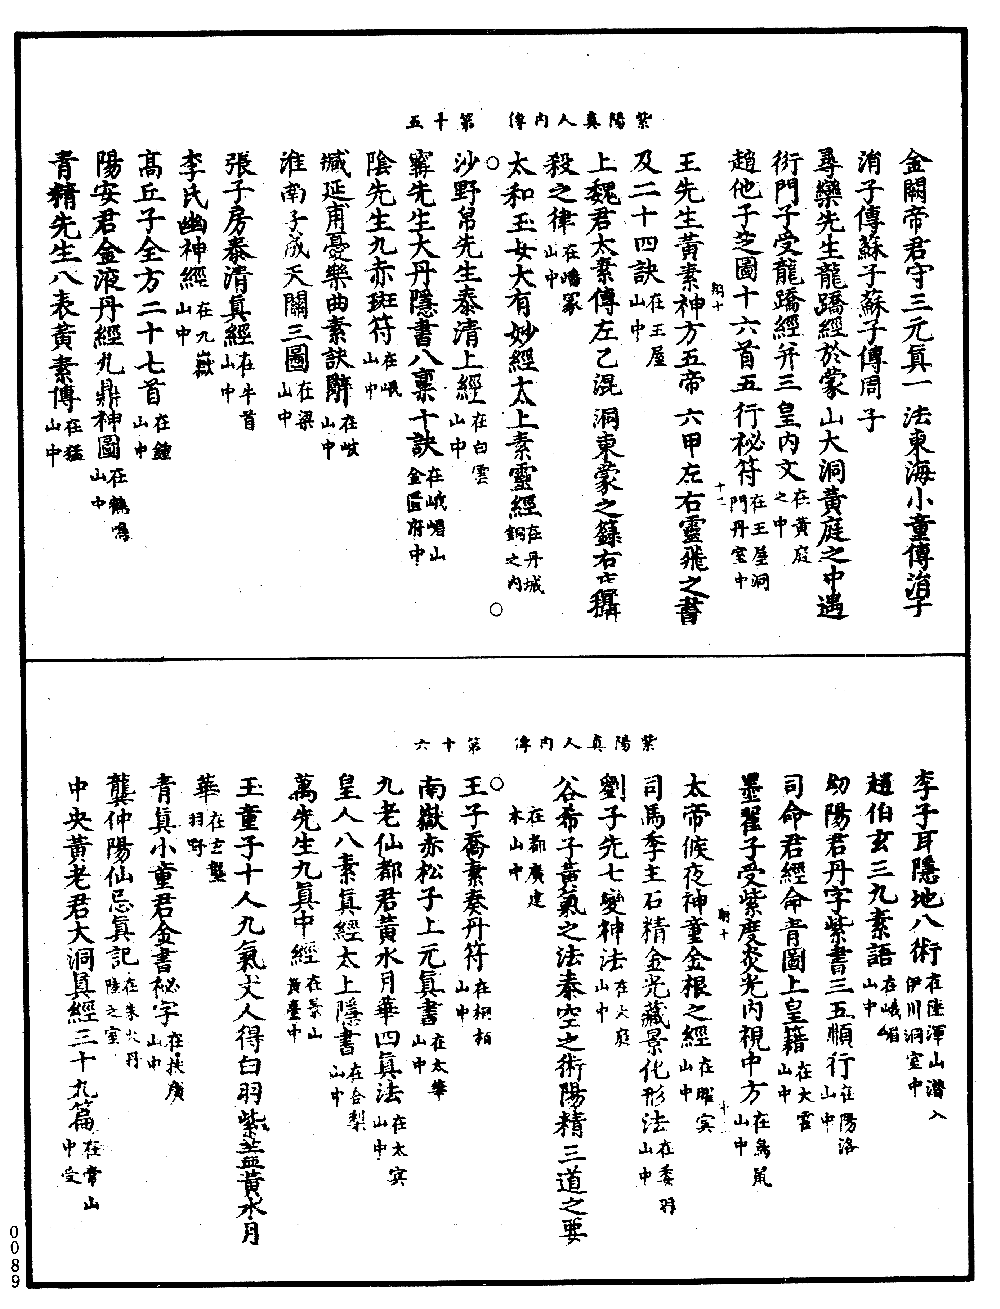 紫陽真人內傳　第十五
金闕帝君守三元真一法東海小童傳涓子
消子傳蘇子蘇子傳周子
尋欒先生龍蹻經於蒙山大洞黃庭之中遇
衍門子受龍蹻經并三皇內文在黃庭之中
趙他子芝圖十六首五行祕符在王屋洞門丹室中
王先生黃素神方五帝六甲左右靈飛之書
及二十四訣在王屋山中
上魏君太素傳左乙混洞東蒙之籙右庶攝
殺之律在潘冢山中
太和玉女大有妙經太上素靈經在丹城銅之內
沙野帛先生泰清上經在白雲山中
甯先生大丹隱書八稟十訣在峨嵋山金匱府中
陰先生九赤班符在岷山中
臧延甫憂樂曲素訣辭在岐山中
淮南子成天關三圖在梁山中
張子房泰清真經在牛首山中
李氏幽神經在九嶽山中
高丘子全方二十七首在鍾山中
陽安君金液丹經九鼎神圖在鶴鳴山中
青精先生八表黃素傳在猛山中
紫陽真人內傳　第十六
李子耳隱地八術在陸渾山潛入伊川洞室中
趙伯玄三九素語在峨嵋山中
幼陽君丹字紫書三五順行在陽洛山中
司命君經命青圖上皇籍在大霍山中
墨翟子受紫度炎光內視中方在鳥鼠山中
太帝候夜神童金根之經在曜宾山中
司馬季主石精金光藏景化形法在委羽山中
劉子先七變神法在大庭山中
谷希子黃氣之法泰空之術陽精三道之要
在都廣建木山中
王子喬素奏丹符在桐柏山中
南嶽赤松子上元真書在太華山中
九老仙都君黃水月華四真法在太宾山中
皇人八素真經太上隱書在合梨山中
萬先生九真中經在景山黃臺中
玉童子十人九氣丈人得白羽紫蓋黃水月
華在玄壟羽野
青真小童君金書祕字在扶廣山中
龔仲陽仙忌真記在朱火丹陵之室
中央黃老君大洞真經三十九篇在常山中受
0089